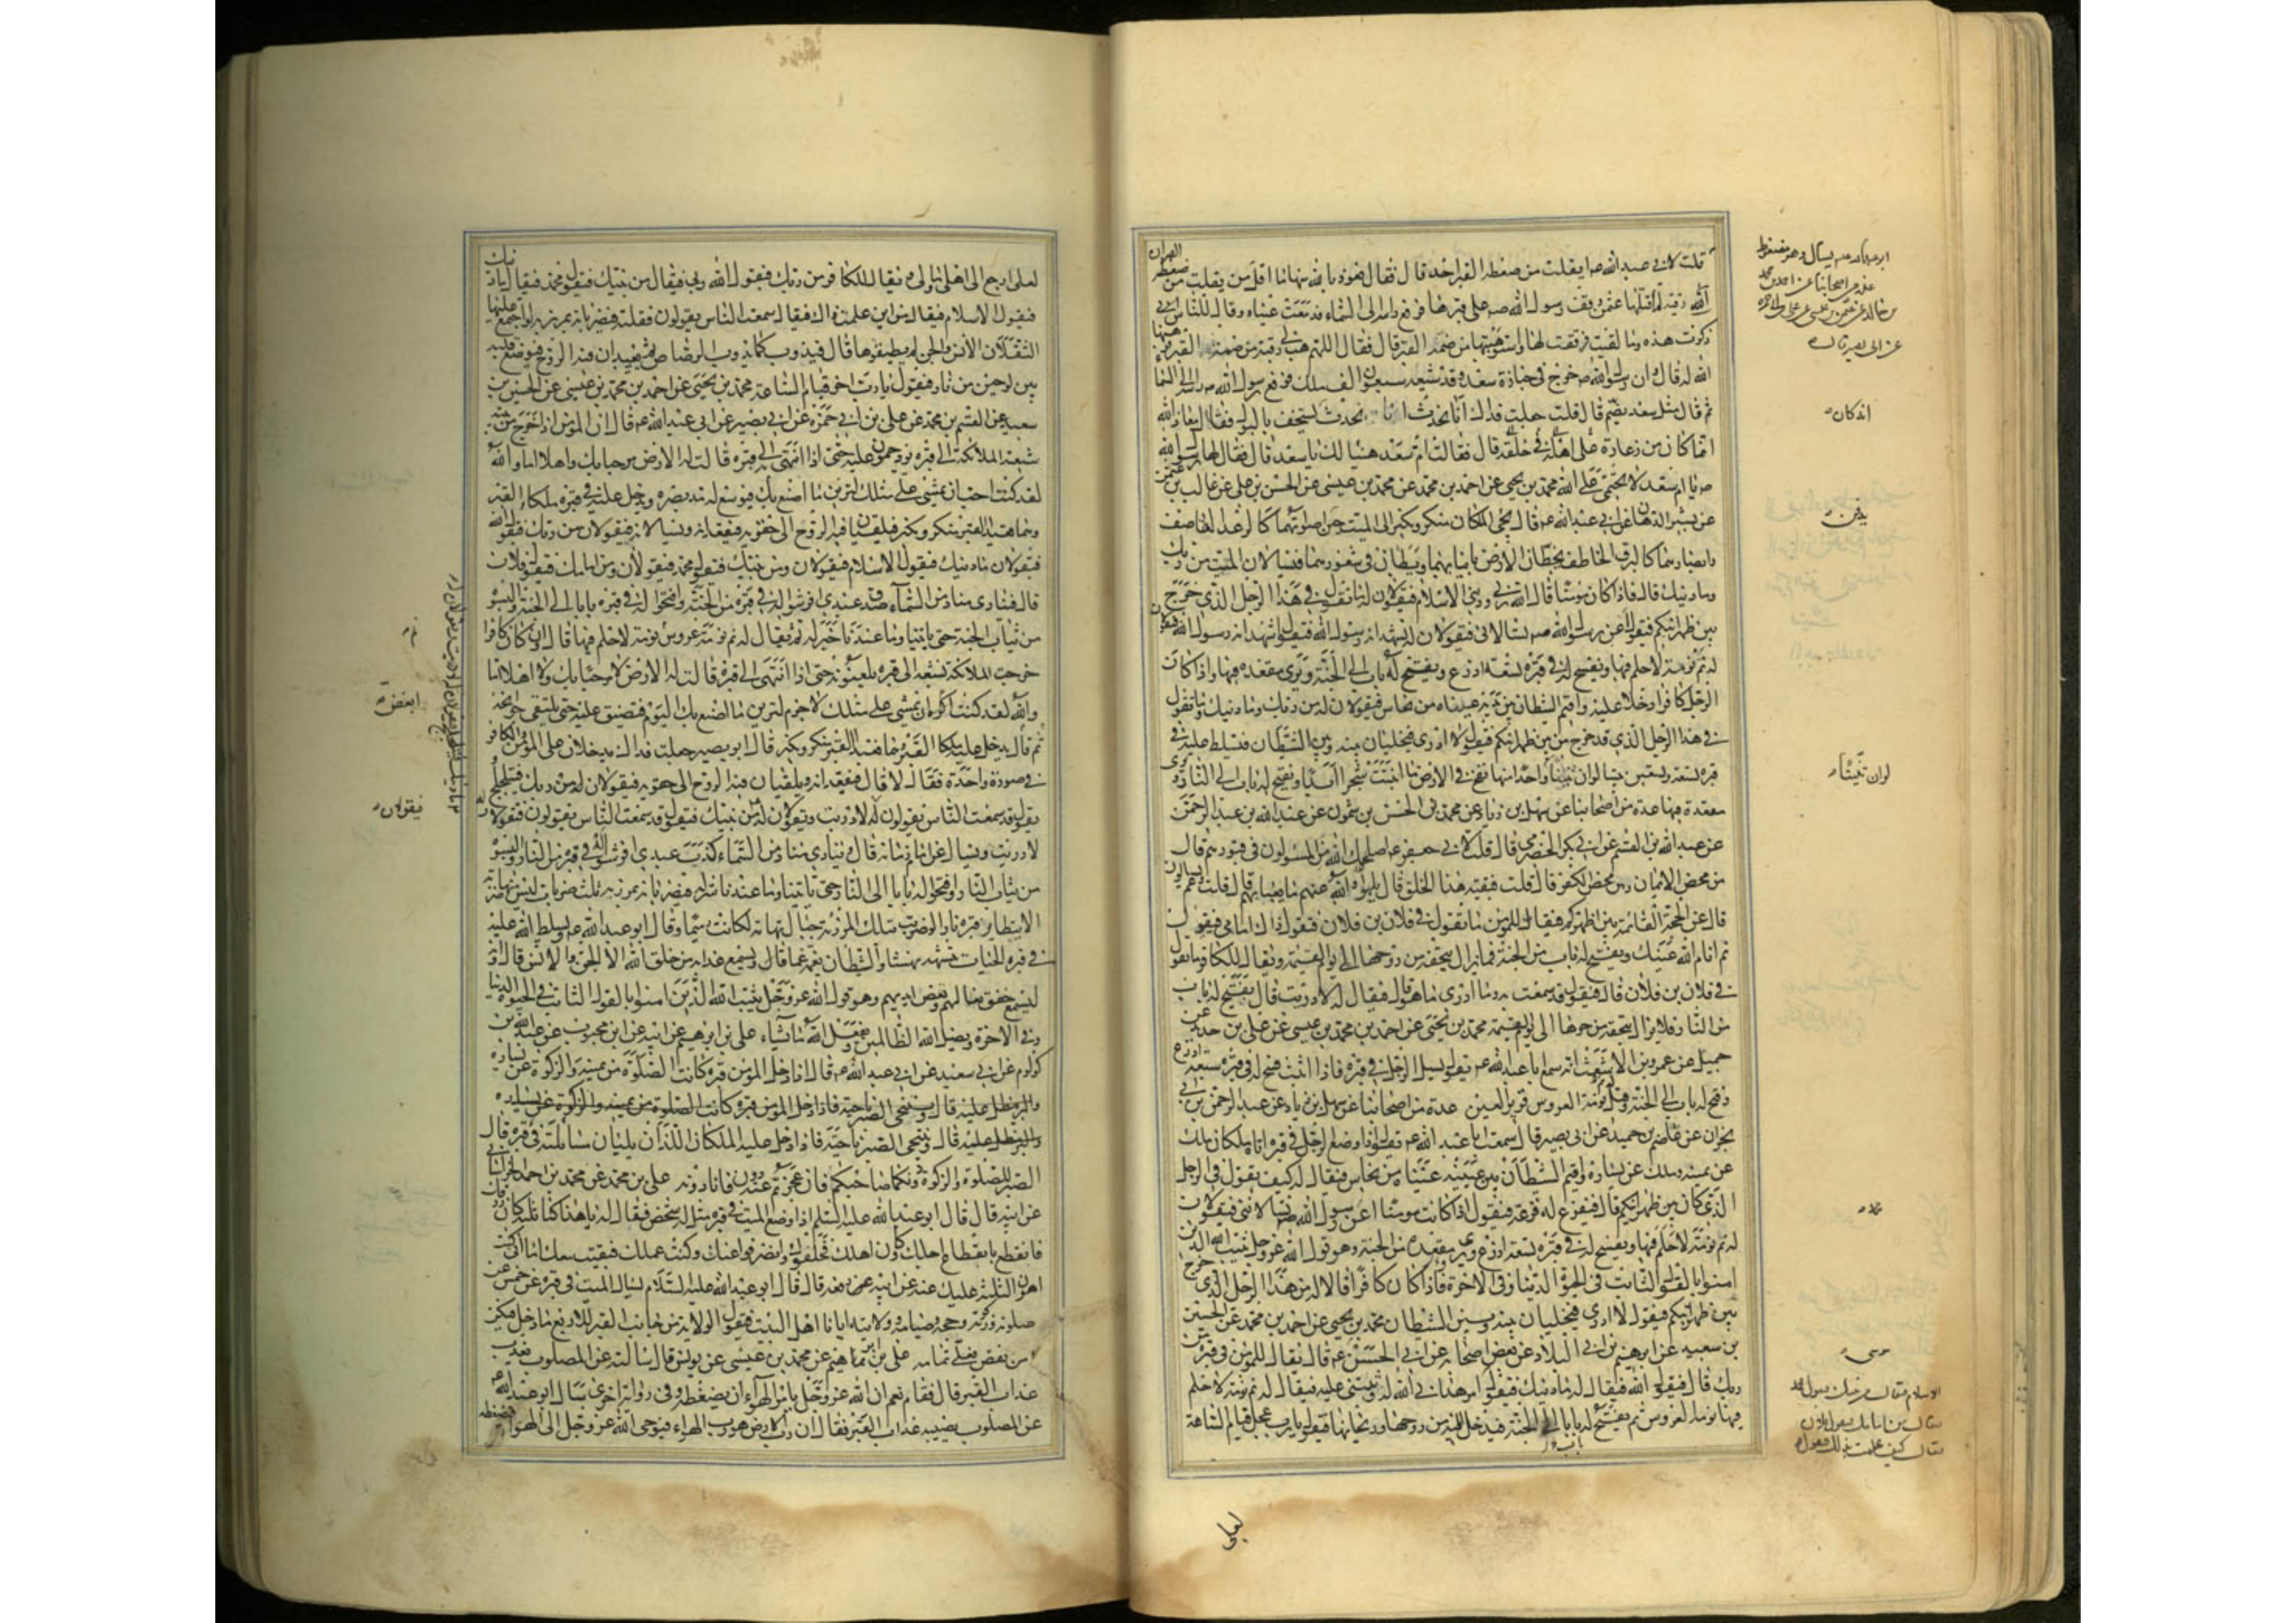 قلت لابي عبد الله ع ايفلت من ضغطة القبر احد قال فقال نعوذ بالله منها ما اقل من يفلت من ضغطة
وقف رسول الله ص على قبرها فرفع راسه الى السماء فدمعت عيناه وقال للناس اني
ذكرت هذه وما لقيت فرققت لها واستوهبتها من ضمة القبر قال فقال اللهم هب لي رقية من ضمة القبر فوهبها
الله له قال وان رسول الله ص خرج في جنازة سعد وقد شيعه سبعون الف ملك فرفع رسول الله ص راسه الى السماء
ثم قال مثل سعد يضم قال قلت جعلت فداك انا نحدث انه كان يستخف بالبول فقال معاذ الله
انما كان من زعارة في خلقه على اهله قال فقالت ام سعد هنيئا لك يا سعد قال فقال لها رسول الله
ص يا ام سعد لا تحتمي على الله محمد بن يحيى عن احمد بن محمد عن محمد بن عيسى عن الحسن بن علي عن غالب بن عثمن
عن بشير الدهان عن ابي عبد الله ع قال يجئ الملكان منكر ونكير الى الميت حين اصواتهما كالرعد القاصف
وابصارهما كالبرق الخاطف يخطان الارض بانيابهما ويطان في شعورهما فيسالان الميت من ربك
وما دينك قال فاذا كان مومنا قال الله ربي وديني الاسلام فيقولان له ما تقول في هذا الرجل الذي خرج
بين ظهرانيكم فيقول اعن رسول الله ص تسالاني فيقولان له تشهد انه رسول الله فيقول اشهد انه رسول الله فيقولان
له نم نومة لا حلم فيها ويفسح له في قبره تسعة اذرع ويفتح له باب الى الجنة ويرى مقعده فيها واذا كان
الرجل كافرا دخلا عليه واقيم الشيطان بين يديه عيناه من نحاس فيقولان له من ربك وما دينك وما تقول
في هذا الرجل الذي قد خرج من بين ظهرانيكم فيقول لا ادري فيخليان بينه وبين الشيطان فيسلط عليه في
قبره تسعة وتسعين تنينا لو ان تنينا واحدا منها نفخ في الارض ما انبتت شجرا ابدا ويفتح له باب الى النار ويرى
مقعده فيها عدة من اصحابنا عن سهل بن زياد عن محمد بن الحسن بن شمون عن عبد الله بن عبد الرحمن
عن عبد الله بن القسم عن ابي بكر الحضرمي قال قلت لابي جعفر ع اصلحك الله من المسؤلون في قبورهم قال
من محض الايمان ومن محض الكفر قال قلت فبقية هذا الخلق قال يلهوه الله عنهم ما يعبا بهم قال قلت وعم يسالون
قال عن الحجة القائمة بين اظهركم فيقال للمومن ما تقول في فلان بن فلان فيقول ذاك امامي فيقول
نم انام الله عينك ويفتح له باب من الجنة فما يزال يتحفه من روحها الى يوم القيمة ويقال للكافر ما تقول
في فلان بن فلان قال فيقول قد سمعت به وما ادري ما هو قال فيقال له لا دريت قال يفتح له باب
من النار فلا يزال يتحفه من حرها الى يوم القيمة محمد بن يحيى عن احمد بن محمد بن عيسى عن علي بن حديد عن
جميل عن عمرو بن الاشعث انه سمع ابا عبد الله ع يقول يسال الرجل في قبره فاذا اثبت فسح له في قبره سبعة اذرع
وفتح له باب الى الجنة وقيل له نم نومة العروس قرير العين عدة من اصحابنا عن سهل بن زياد عن عبد الرحمن بن ابي
نجران عن عاصم بن حميد عن ابي بصير قال سمعت ابا عبد الله ع يقول اذا وضع الرجل في قبره اتاه ملكان ملك
عن يمينه وملك عن يساره واقيم الشيطان بين عينيه عيناه من نحاس فيقال له كيف تقول في الرجل
الذي كان بين ظهرانيكم قال فيفزع له فزعة فيقول اذا كان مومنا اعن رسول الله ص تسالاني فيقولان
له نم نومة لا حلم فيها ويفسح له في قبره تسعة اذرع ويرى مقعده من الجنة وهو قول الله عز وجل يثبت الله الذين
امنوا بالقول الثابت في الحيوة الدنيا وفي الاخرة فاذا كان كافرا قالا له من هذا الرجل الذي خرج
بين ظهرانيكم فيقول لا ادري فيخليان بينه وبين الشيطان محمد بن يحيى عن احمد بن محمد عن الحسين
بن سعيد عن ابرهيم بن ابي البلاد عن بعض اصحابه عن ابي الحسن ع قال يقال للمومن في قبره من
ربك قال فيقول الله فيقال له ما دينك فيقول امر هداني الله له وثبتني عليه فيقال له نم نومة لا حلم
فيها نومة العروس ثم يفتح له باب الى الجنة فيدخل اليه من روحها وريحانها فيقول يا رب عجل قيام الساعة
لعلي
ابو عبد الله ع يسال وهو مضغوط
عدة من اصحابنا عن احمد بن محمد
بن خالد عن عثمن بن عيسى عن علي بن ابي حمزة
عن ابي بصير قال
انه كان
يدفن
لو ان تنينا
محمد
موسى
الاسلام فيقال من نبيك فيقول محمد
فيقال من امامك فيقول فلان
فيقال كيف علمت بذلك فيقول
لعلي ارجع الى اهلي ومالي ويقال للكافر من ربك فيقول الله ربي فيقال من نبيك فيقول محمد فيقال ما دينك
فيقول الاسلام فيقال من اين علمت ذلك فيقال سمعت الناس يقولون فقلته فيضربانه بمرزبة لو اجتمع عليها
الثقلان الانس والجن لم يطيقوها قال فيذوب كما يذوب الرصاص ثم يعيدان فيه الروح فيوضع قلبه
بين لوحين من نار فيقول يا رب اخر قيام الساعة محمد بن يحيى عن احمد بن محمد بن عيسى عن الحسين بن
سعيد عن القسم بن محمد عن علي بن ابي حمزة عن ابي بصير عن ابي عبد الله ع قال ان المومن اذا خرج من بيته
شيعته الملائكة الى قبره يزدحمون عليه حتى اذا انتهى الى قبره قالت له الارض مرحبا بك واهلا اما والله
لقد كنت احب ان يمشي علي مثلك لترين ما اصنع بك فيوسع له مد بصره ويدخل عليه في قبره ملكا القبر
وهما قعيدا القبر منكر ونكير فيلقيان فيه الروح الى حقويه فيقعدانه ويسالانه فيقولان من ربك فيقول الله
فيقولان ما دينك فيقول الاسلام فيقولان ومن نبيك فيقول محمد فيقولان ومن امامك فيقول فلان
قال فينادي مناد من السماء صدق عبدي افرشوا له في قبره من الجنة وافتحوا له في قبره بابا الى الجنة والبسوه
من ثياب الجنة حتى ياتينا وما عندنا خير له ثم يقال له نم نومة عروس نومة لا حلم فيها قال وان كان كافرا
خرجت الملائكة تشيعه الى قبره يلعنونه حتى اذا انتهى الى قبره قالت له الارض لا مرحبا بك ولا اهلا اما
والله لقد كنت اكره ان يمشي علي مثلك لا جرم لترين ما اصنع بك اليوم فتضيق عليه حتى يلتقي جوانحه
ثم قال يدخل عليه ملكا القبر وهما قعيدا القبر منكر ونكير قال ابو بصير جعلت فداك يدخلان على المومن والكافر
في صورة واحدة فقال لا قال فيقعدانه ويلقيان فيه الروح الى حقويه فيقولان له من ربك فيتلجلج
يقول قد سمعت الناس يقولون فيقولان له لا دريت ويقولان له من نبيك فيقول قد سمعت الناس يقولون فيقولان
لا دريت ويسال عن امام زمانه قال وينادي مناد من السماء كذب عبدي افرشوا له في قبره من النار والبسوه
من ثياب النار وافتحوا له بابا الى النار حتى ياتينا وما عندنا شر له فيضربانه بمرزبة ثلث ضربات ليس منها ضربة
الا يتطاير قبره نارا لو ضرب بتلك المرزبة جبال تهامة لكانت رميما وقال ابو عبد الله ع ويسلط الله عليه
في قبره الحيات تنهشه نهشا والشيطان يغمه غما قال ويسمع عذابه من خلق الله الا الجن والانس قال وانه
ليسمع خفق نعالهم ونفض ايديهم وهو قول الله عز وجل يثبت الله الذين امنوا بالقول الثابت في الحيوة الدنيا
وفي الاخرة ويضل الله الظالمين ويفعل الله ما يشاء علي بن ابرهيم عن ابيه عن ابن محبوب عن عبد الله بن
كولوم عن ابي سعيد عن ابي عبد الله ع قال اذا دخل المومن قبره كانت الصلوة عن يمينه والزكوة عن يساره
والبر مطل عليه قال ويتنحى الصبر ناحية فاذا دخل المومن قبره كانت الصلوة عن يمينه والزكوة عن يساره
والبر مطل عليه قال ويتنحى الصبر ناحية فاذا دخل عليه الملكان اللذان يليان مسائلته في قبره قال
الصبر للصلوة والزكوة دونكما صاحبكم فان عجزتم عنه فانا دونه علي بن محمد عن محمد بن احمد الخراساني
عن ابيه قال قال ابو عبد الله عليه السلم اذا وضع الميت في قبره مثل له شخص فقال له يا هذا كنا ثلثة كان رزقك
فانقطع بانقطاع اجلك وكان اهلك فخلفوك وانصرفوا عنك وكنت عملك فبقيت معك اما اني كنت
اهون الثلثة عليك عنه عن ابيه رفعه قال قال ابو عبد الله عليه السلام يسال الميت في قبره عن خمس عن
صلوته وزكوته وحجه وصيامه وولايته ايانا اهل البيت فيقول الولاية من جانب القبر للاربع ما دخل فيكن
من نقص فعلي تمامه علي بن ابرهيم عن محمد بن عيسى عن يونس قال سالته عن المصلوب يعذب
عذاب القبر قال فقال نعم ان الله عز وجل يامر الهواء ان يضغطه وفي رواية اخرى سال ابو عبد الله ع
عن المصلوب يصيبه عذاب القبر فقال ان رب الارض هو رب الهواء فيوحي الله عز وجل الى الهواء فيضغطه
ابغض
فيقولان